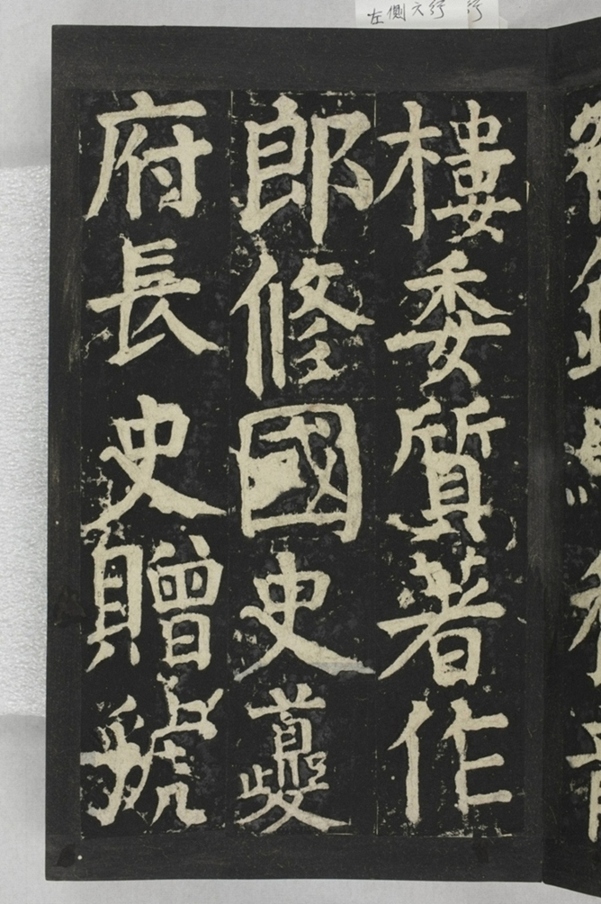 左側
樓委質著作
郎修國史夔
府長史贈虢